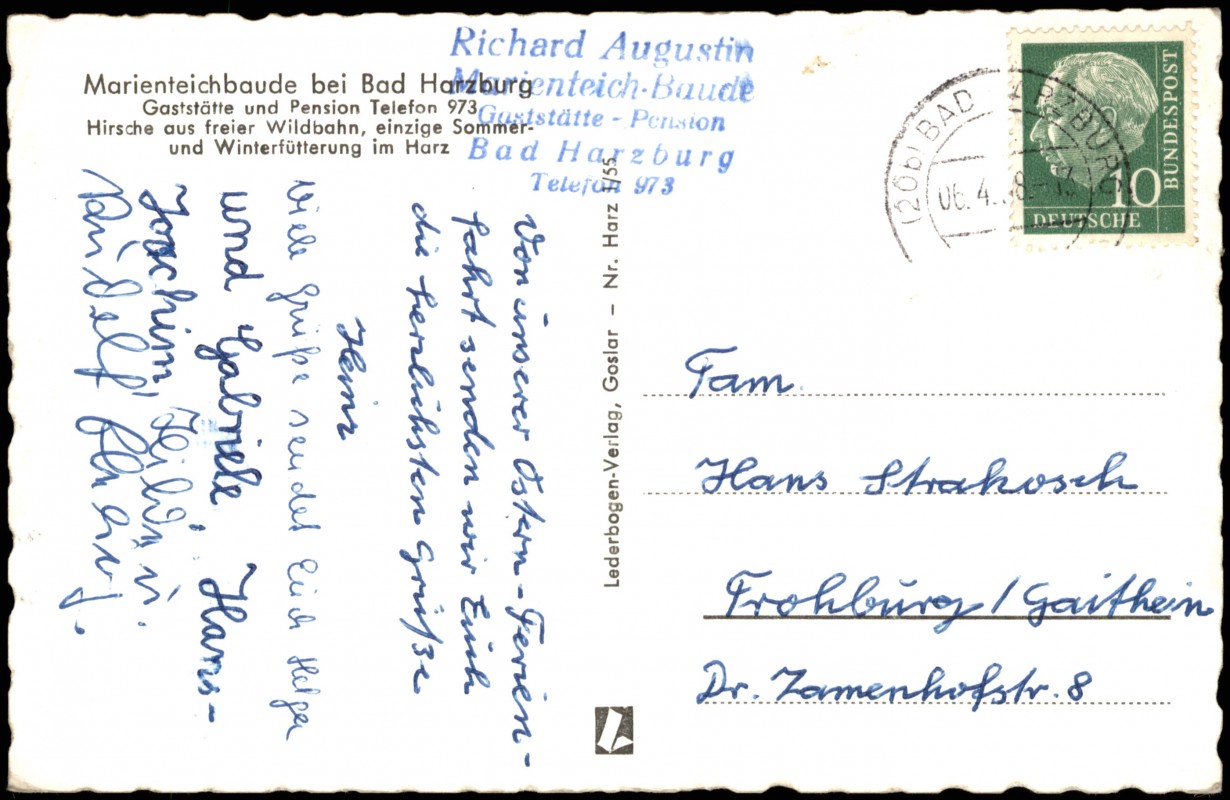 Marienteichbaude bei Bad Harzburg
Gaststätte und Pension Telefon 973
Hirsche aus freier Wildbahn, einzige Sommer-
und Winterfütterung im Harz
Richard Augustin
Marienteich-Baude
Gaststätte - Pension
Bad Harzburg
Telefon 973
(20b) BAD HARZBURG
06.4.58.-13
10
DEUTSCHE
BUNDESPOST
Von unserer Ostern-Ferien-
fahrt senden wir Euch
die herzlichsten Grüße
Heinz
Viele Grüße sendet Euch Helga
und Gabriele, Hans-
Joachim,
Lederbogen-Verlag, Goslar – Nr. Harz 1/55
Fam.
Hans Strakosch
Frohburg / Gaithein
Dr. Zamenhofstr. 8